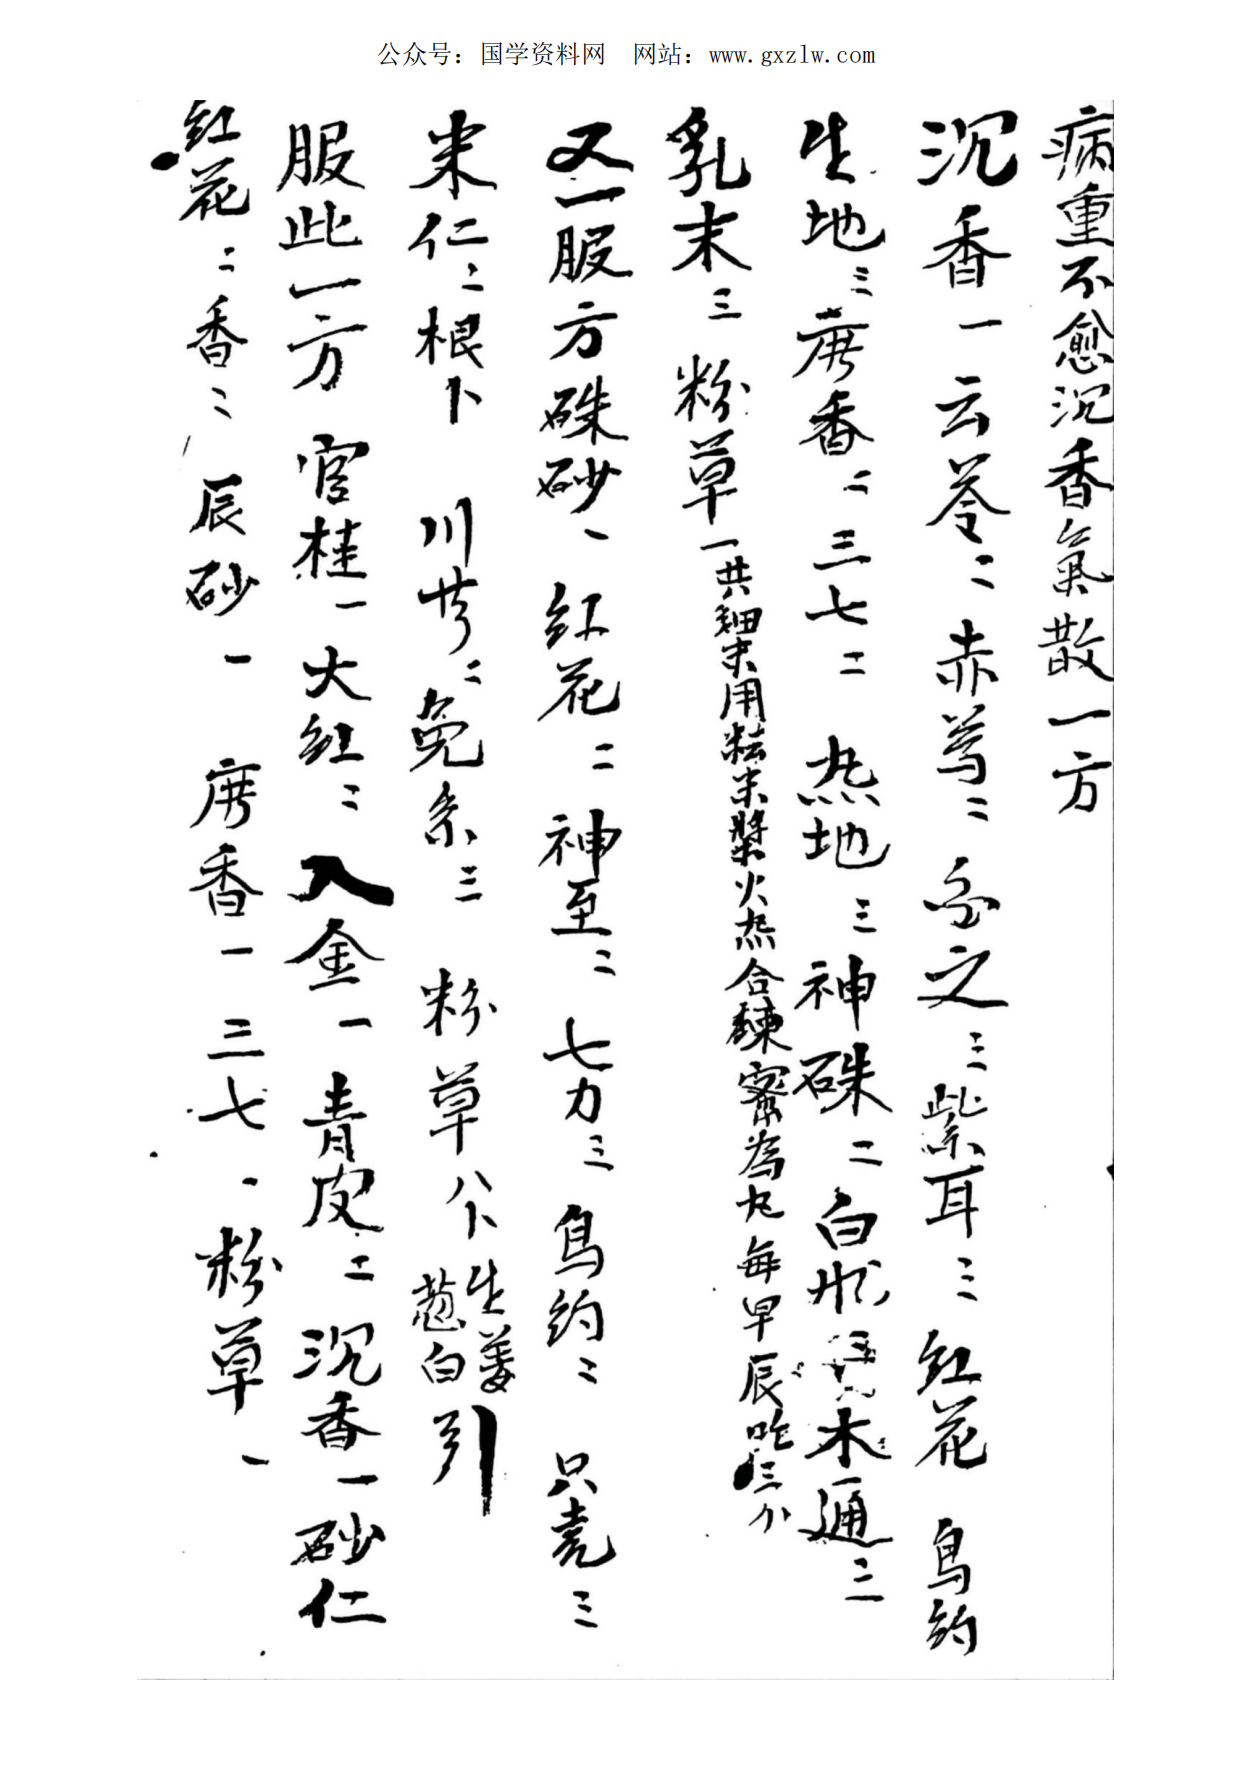 公众号：国学资料网　网站：www.gxzlw.com
病重不愈沉香氣散一方
沉香一云苓二赤芍二分之三紫耳三红花烏约
生地三麝香二三七二热地三神硃二白木通三
乳末三粉草一共細末用粘米槳火热合鍊蜜為丸每早辰三分
又一服方硃砂一红花二神至二七力三烏约二只壳三
米仁二根卜川芎二兔糸三粉草八卜生姜葱白引
服此一方官桂一大红二入金一青皮二沉香一砂仁
红花二香二辰砂一麝香一三七一粉草一